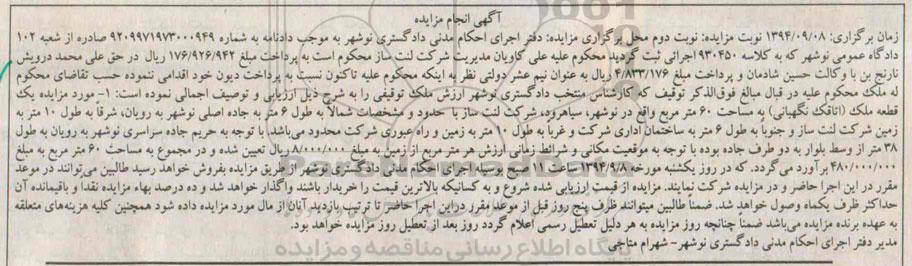 آگهی انجام مزایده
زمان برگزاری: ۱۳۹۴/۰۹/۰۸ نوبت مزایده: نوبت دوم محل برگزاری مزایده: دفتر اجرای احکام مدنی دادگستری نوشهر به موجب دادنامه به شماره ۹۲۰۹۹۷۱۹۷۳۰۰۰۹۴۹ صادره از شعبه ۱۰۲
دادگاه عمومی نوشهر که به کلاسه ۹۳۰۴۵۰ اجرائی ثبت گردید محکوم علیه علی کاویان مدیریت شرکت لنت ساز محکوم است به پرداخت مبلغ ۱۷۶/۹۲۶/۹۴۲ ریال در حق علی محمد درویش
نارنج بن با وکالت حسین شادمان و پرداخت مبلغ ۴/۸۳۳/۱۷۶ ریال به عنوان نیم عشر دولتی نظر به اینکه محکوم علیه تاکنون نسبت به پرداخت دیون خود اقدامی ننموده حسب تقاضای محکوم
له ملک محکوم علیه در قبال مبالغ فوق‌الذکر توقیف که کارشناس منتخب دادگستری نوشهر ارزش ملک توقیفی را به شرح ذیل ارزیابی و توصیف اجمالی نموده است: ۱- مورد مزایده یک
قطعه ملک (اتاقک نگهبانی) به مساحت ۶۰ متر مربع واقع در نوشهر، سیاهرود، شرکت لنت ساز با حدود و مشخصات شمالاً به طول ۶ متر به جاده اصلی نوشهر به رویان، شرقا به طول ۱۰ متر به
زمین شرکت لنت ساز و جنوبا به طول ۶ متر به ساختمان اداری شرکت و غربا به طول ۱۰ متر به زمین و راه عبوری شرکت محدود می‌باشد. با توجه به حریم جاده سراسری نوشهر به رویان به طول
۳۸ متر از وسط بلوار به دو طرف جاده بوده با توجه به موقعیت مکانی و شرائط زمانی ارزش هر متر مربع از زمین به مبلغ ۸/۰۰۰/۰۰۰ ریال تعیین شده و در مجموع به مساحت ۶۰ متر مربع به مبلغ
۴۸۰/۰۰۰/۰۰۰ بر آورد می گردد. که در روز یکشنبه مورخه ۱۳۹۴/۹/۸ ساعت ۱۱ صبح بوسیله اجرای احکام مدنی دادگستری نوشهر از طریق مزایده بفروش خواهد رسید طالبین می‌توانند در موعد
مقرر در این اجرا حاضر و در مزایده شرکت نمایند. مزایده از قیمت ارزیابی شده شروع و به کسانیکه بالاترین قیمت را خریدار باشند واگذار خواهد شد و ده درصد بهاء مزایده نقدا و باقیمانده آن
حداکثر ظرف یکماه وصول خواهد شد. ضمناً طالبین میتوانند ظرف پنج روز قبل از موعد مقرر در این اجرا حاضر تا ترتیب بازدید آنان از مال مورد مزایده داده شود همچنین کلیه هزینه‌های متعلقه
به عهده برنده مزایده می‌باشد ضمناً چنانچه روز مزایده به هر دلیل تعطیل رسمی اعلام گردد روز بعد از تعطیل روز مزایده خواهد بود.
مدیر دفتر اجرای احکام مدنی دادگستری نوشهر- شهرام متاجی
پایگاه اطلاع رسانی مناقصه و مزایده